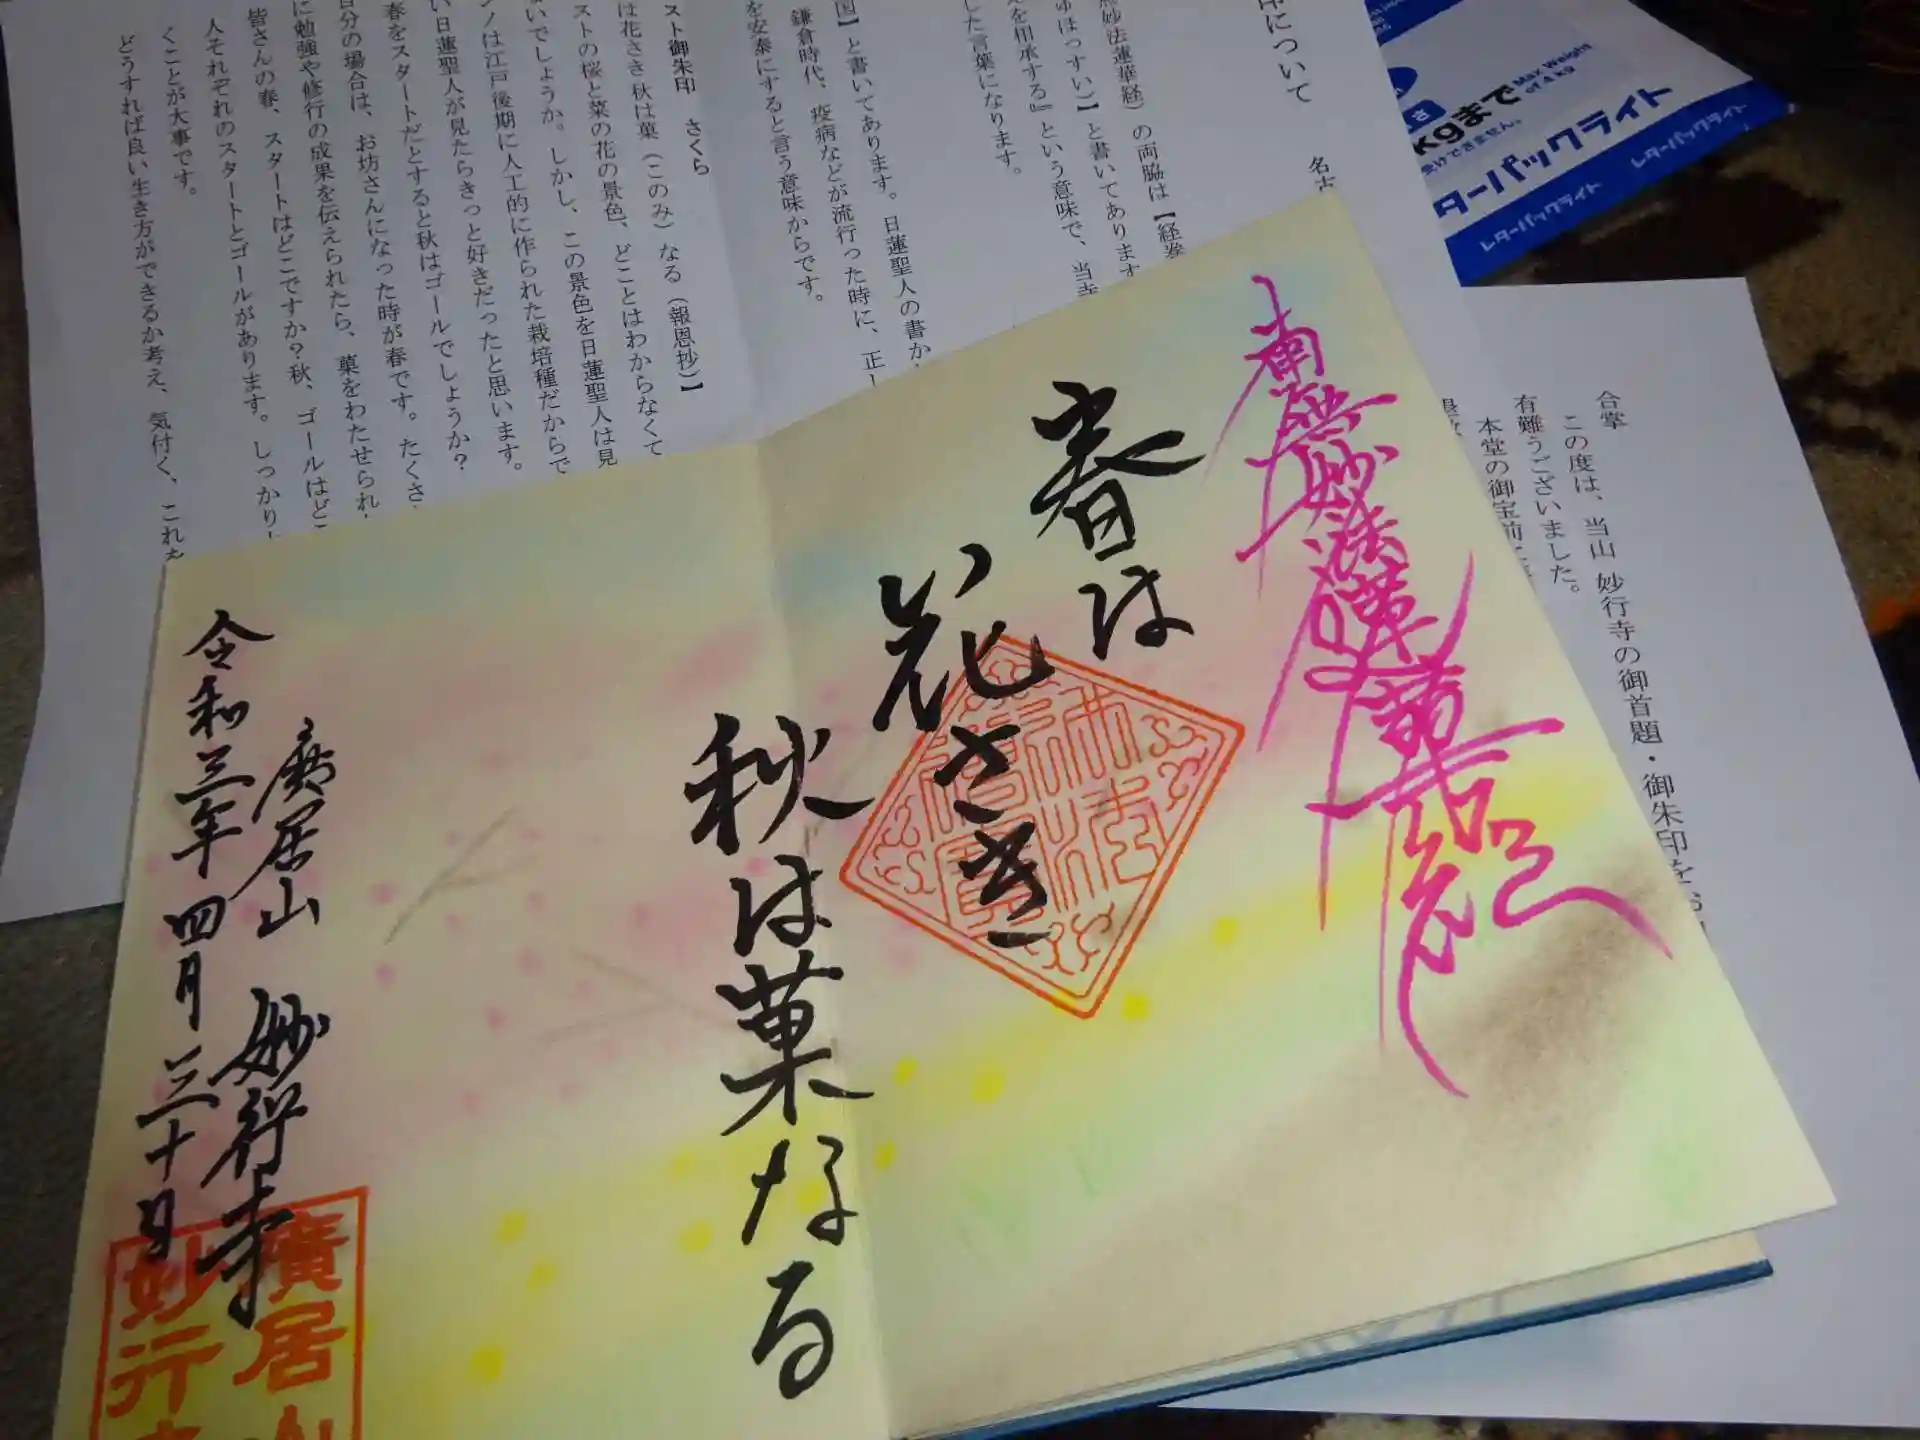 南無妙法蓮華経
春は
花さき
秋は菓なる
廣居山 妙行寺
令和三年四月三十日
廣居山
妙行
印について
名古
無妙法蓮華経)の両脇は【経巻
ゆほっすい)】と書いてあります
を相承する』という意味で、当寺
した言葉になります。
国】と書いてあります。日蓮聖人の書か
鎌倉時代、疫病などが流行った時に、正し
を安泰にすると言う意味からです。
スト御朱印 さくら
は花さき 秋は菓(このみ)なる(報恩抄)】
ストの桜と菜の花の景色、どことはわからなくて
ないでしょうか。しかし、この景色を日蓮聖人は見
ノは江戸後期に人工的に作られた栽培種だからで
い日蓮聖人が見たらきっと好きだったと思います。
春をスタートだとすると秋はゴールでしょうか?
自分の場合は、お坊さんになった時が春です。たくさ
に勉強や修行の成果を伝えられたら、菓をわたせられ
皆さんの春、スタートはどこですか?秋、ゴールはどこ
人それぞれのスタートとゴールがあります。しっかり
くことが大事です。
どうすれば良い生き方ができるか考え、気付く、これを
合掌
この度は、当山 妙行寺の御首題・御朱印を
有難うございました。
本堂の御宝前に
kgまで
Max Weight
of 4 kg
ターパックライト
レターパックライト
レターパックライト